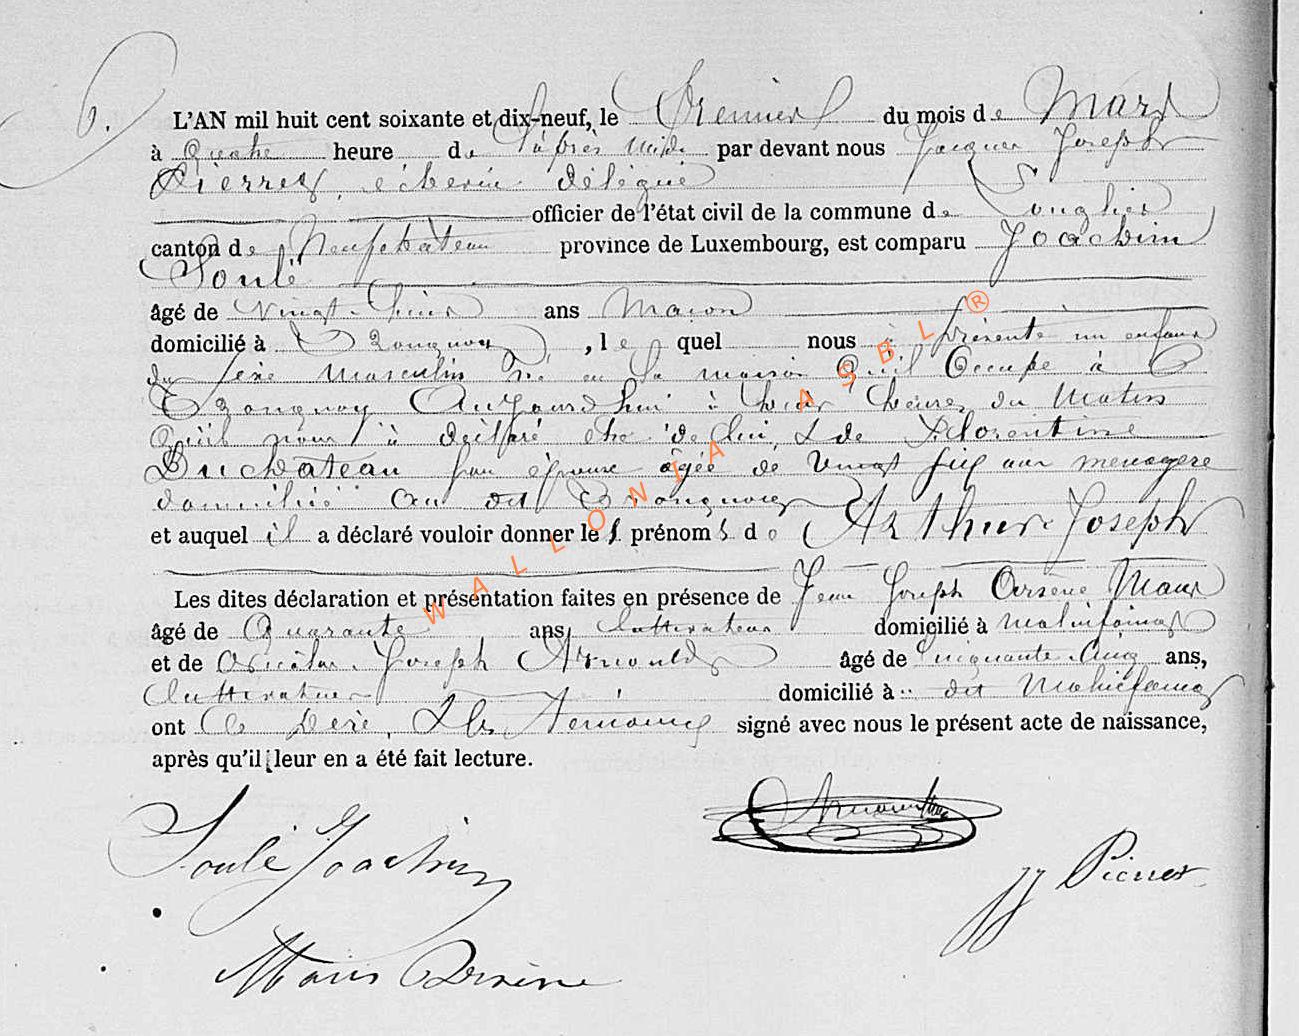 6.
L'AN mil huit cent soixante et dix-neuf, le Premier du mois de Mars
à Quatre heure de l'après midi par devant nous Jacques Joseph
Pierret échevin délégué
officier de l'état civil de la commune de Longlier
canton de Neufchâteau province de Luxembourg, est comparu Joachim
Soulé
âgé de vingt ans Maçon
domicilié à Tronquoy, lequel nous à présenté un enfant
du sexe masculin né en la maison Qu'il Occupe à
Tronquoy Aujourd'hui à heures du Matin
Qu'il nous à déclaré etre de lui, & de Florentine
Duchâteau son épouse âgée de vingt six ans menagere
domiciliée au dit Tronquoy
et auquel il a déclaré vouloir donner les prénoms de Arthur Joseph
Les dites déclaration et présentation faites en présence de Jean Joseph Arsène Maus
âgé de Quarante ans, cultivateur domicilié à Molinfaing
et de Nicolas Joseph Arnould âgé de Cinquante cinq ans,
Cultivateur domicilié à dit Molinfaing
ont le père, & les témoins signé avec nous le présent acte de naissance,
après qu'il leur en a été fait lecture.
Soulé Joachim
Arnould
JJ Pierret
Maus Arsène
WALLONIA ASBL ®